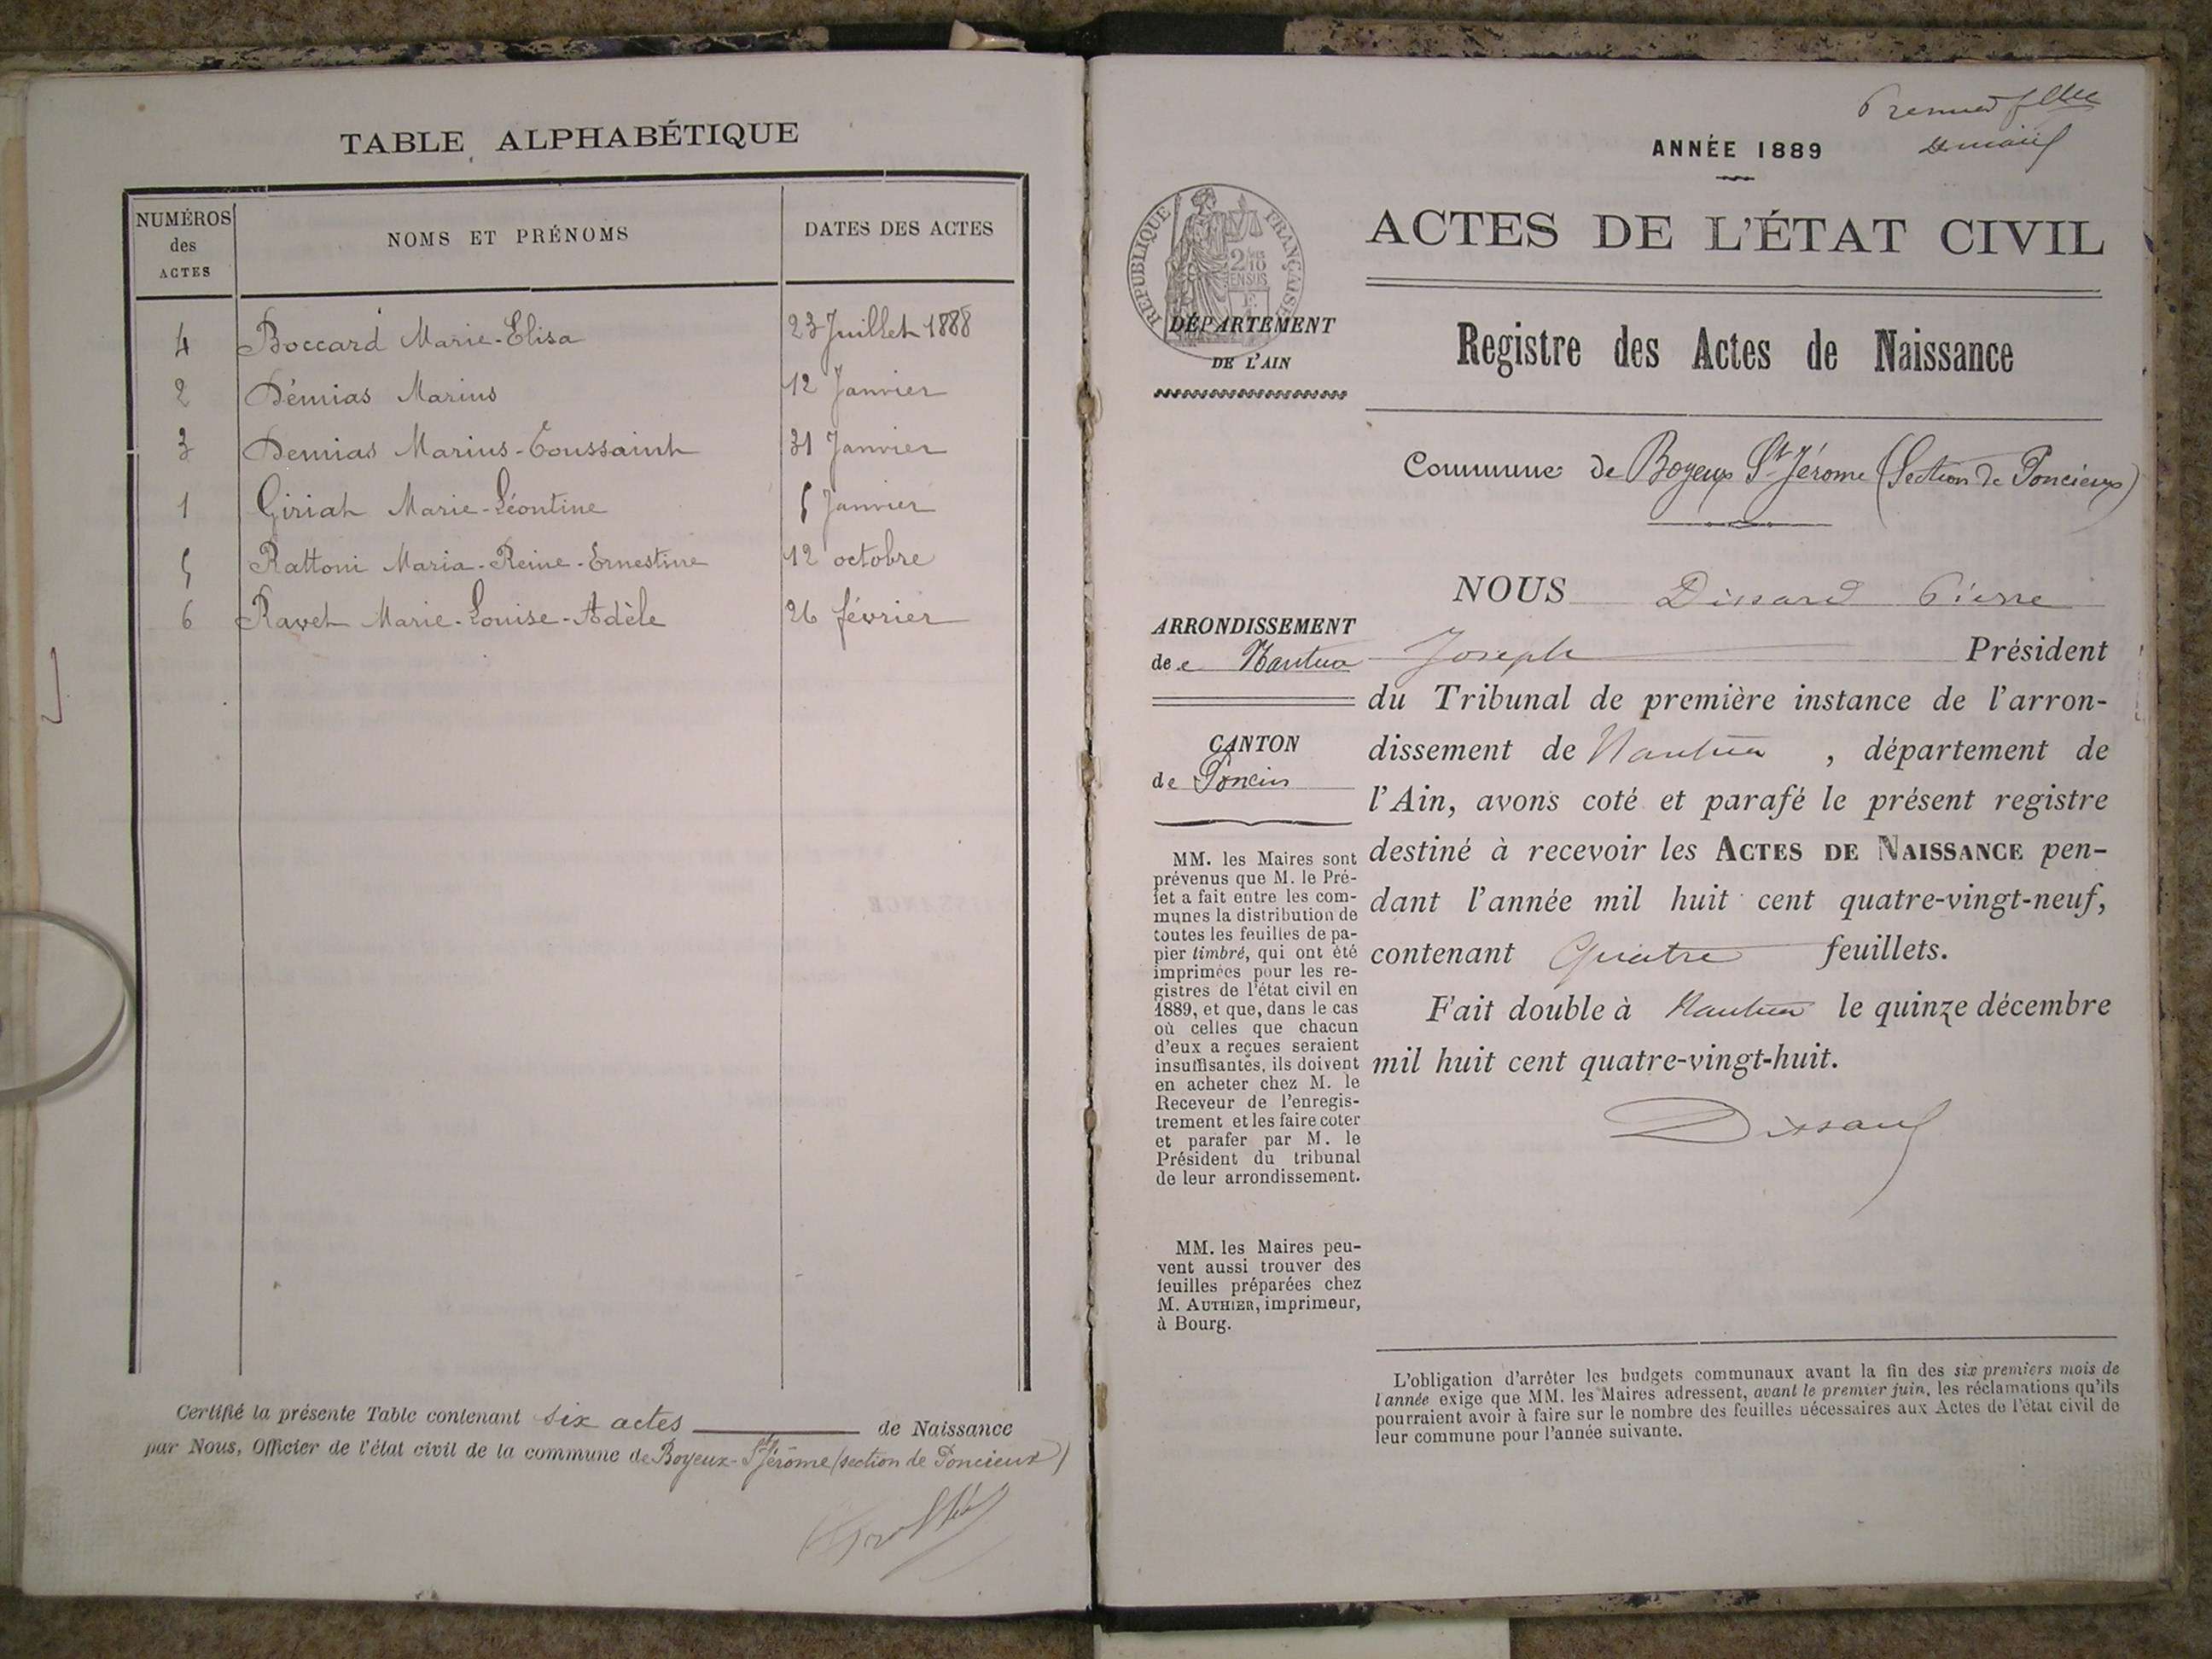 TABLE ALPHABÉTIQUE
NUMÉROS
des
ACTES
NOMS ET PRÉNOMS
DATES DES ACTES
4 Boccard Marie-Elisa 23 Juillet 1888
2 Démias Marius 12 Janvier
3 Demias Marius-Toussaint 31 Janvier
1 Giriat Marie-Léontine 5 Janvier
5 Rattoni Maria-Reine-Ernestine 12 octobre
6 Ravet Marie-Louise-Adèle 26 février
Certifié la présente Table contenant six actes de Naissance
par Nous, Officier de l'état civil de la commune de Boyeux-St Jérôme (section de Poncieux)
Premier
ANNÉE 1889
ACTES DE L'ÉTAT CIVIL
RÉPUBLIQUE FRANÇAISE
DÉPARTEMENT
DE L'AIN
Registre des Actes de Naissance
Commune de Boyeux St Jérome (Section de Poncieux)
NOUS Dissard Pierre
Joseph Président
du Tribunal de première instance de l'arron-
dissement de Nantua , département de
l'Ain, avons coté et parafé le présent registre
destiné à recevoir les ACTES DE NAISSANCE pen-
dant l'année mil huit cent quatre-vingt-neuf,
contenant Quatre feuillets.
Fait double à Nantua le quinze décembre
mil huit cent quatre-vingt-huit.
Dissard
ARRONDISSEMENT
de Nantua
CANTON
de Poncin
MM. les Maires sont
prévenus que M. le Pré-
fet a fait entre les com-
munes la distribution de
toutes les feuilles de pa-
pier timbré, qui ont été
imprimées pour les re-
gistres de l'état civil en
1889, et que, dans le cas
où celles que chacun
d'eux a reçues seraient
insuffisantes, ils doivent
en acheter chez M. le
Receveur de l'enregis-
trement et les faire coter
et parafer par M. le
Président du tribunal
de leur arrondissement.
MM. les Maires peu-
vent aussi trouver des
feuilles préparées chez
M. AUTHIER, imprimeur,
à Bourg.
L'obligation d'arrêter les budgets communaux avant la fin des six premiers mois de
l'année exige que MM. les Maires adressent, avant le premier juin, les réclamations qu'ils
pourraient avoir à faire sur le nombre des feuilles nécessaires aux Actes de l'état civil de
leur commune pour l'année suivante.